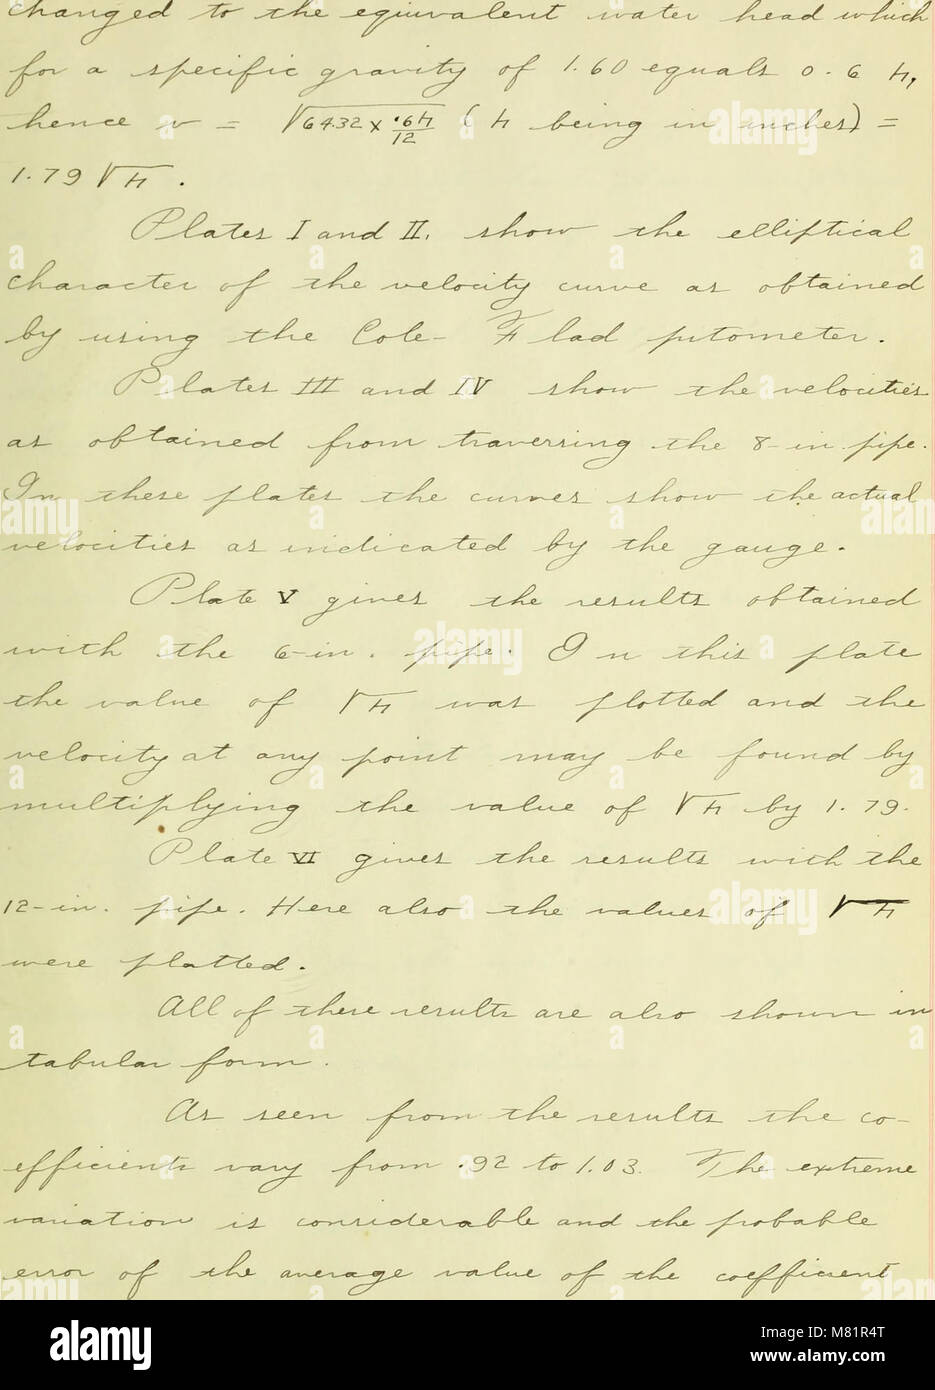 changed to the equivalent water head which
for a specific gravity of 1.60 equals 0.6 h,
hence v = √64.32 x .6h/12 (h being in inches) =
1.79 √h .
Plates I and II. show the elliptical
character of the velocity curve as obtained
by using the Cole-Flad pitometer.
Plates III and IV show the velocities
as obtained from traversing the 8-in pipe.
In these plates the curves show the actual
velocities as indicated by the gauge.
Plate V gives the results obtained
with the 6-in. pipe. In this plate
the value of √h was plotted and the
velocity at any point may be found by
multiplying the value of √h by 1.79.
Plate VI gives the results with the
12-in. pipe. Here also the values of √h
were platted.
All of these results are also shown in
tabular form.
As seen from the results the co-
efficients vary from .92 to 1.03. The extreme
variation is considerable and the probable
error of the average value of the coefficient
alamy
Image ID: M81R4T
www.alamy.com